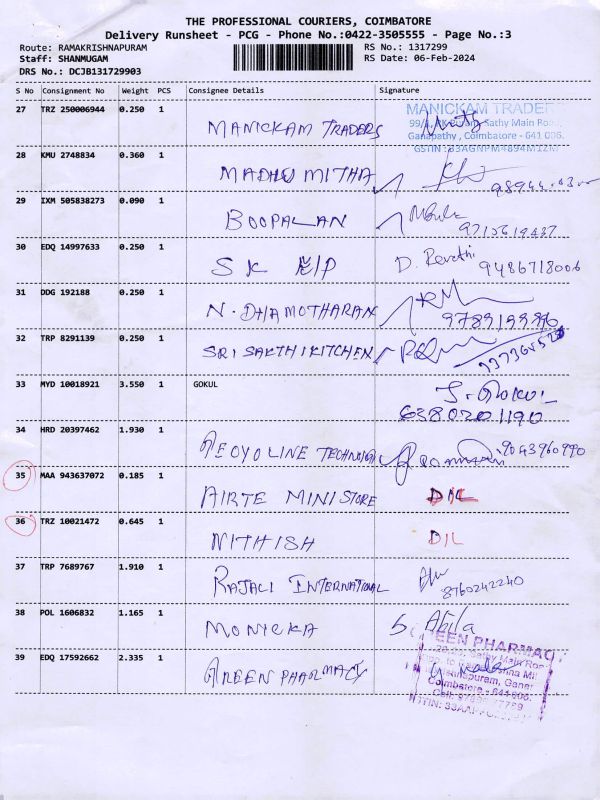 THE PROFESSIONAL COURIERS, COIMBATORE
Delivery Runsheet - PCG - Phone No.:0422-3505555 - Page No.:3
Route: RAMAKRISHNAPURAM RS No.: 1317299
Staff: SHANMUGAM RS Date: 06-Feb-2024
DRS No.: DCJB131729903
S No Consignment No Weight PCS Consignee Details Signature
27 TRZ 250006944 0.250 1
MANICKAM TRADERS
MANICKAM TRADER
Sathy Main Roa
Ganapathy, Coimbatore - 641 006.
GSTIN : 33AGNPM4894M1ZM
28 KMU 2748834 0.360 1
MADHU MITHA
29 IXM 505838273 0.090 1
BOOPALAN
9715619437
30 EDQ 14997633 0.250 1
SK E/P D. Revathi 9486718006
31 DDG 192188 0.250 1
N. DHAMOTHARAN
32 TRP 8291139 0.250 1
SRI SAKTHI KITCHEN
33 MYD 10018921 3.550 1 GOKUL
6380201190
34 HRD 20397462 1.930 1
TECHNOLOGI 9043960990
35 MAA 943637072 0.185 1
AIRTE MINI STORE D/L
36 TRZ 10021472 0.645 1
NITHISH D/L
37 TRP 7689767 1.910 1
RAJALI INTERNATIONAL 8760242240
38 POL 1606832 1.165 1
MONICKA S. Abila
39 EDQ 17592662 2.335 1
AREEN PHARMACY
EEN PHARMAC
Sathy Main Roa
Coimbatore - 641 006.